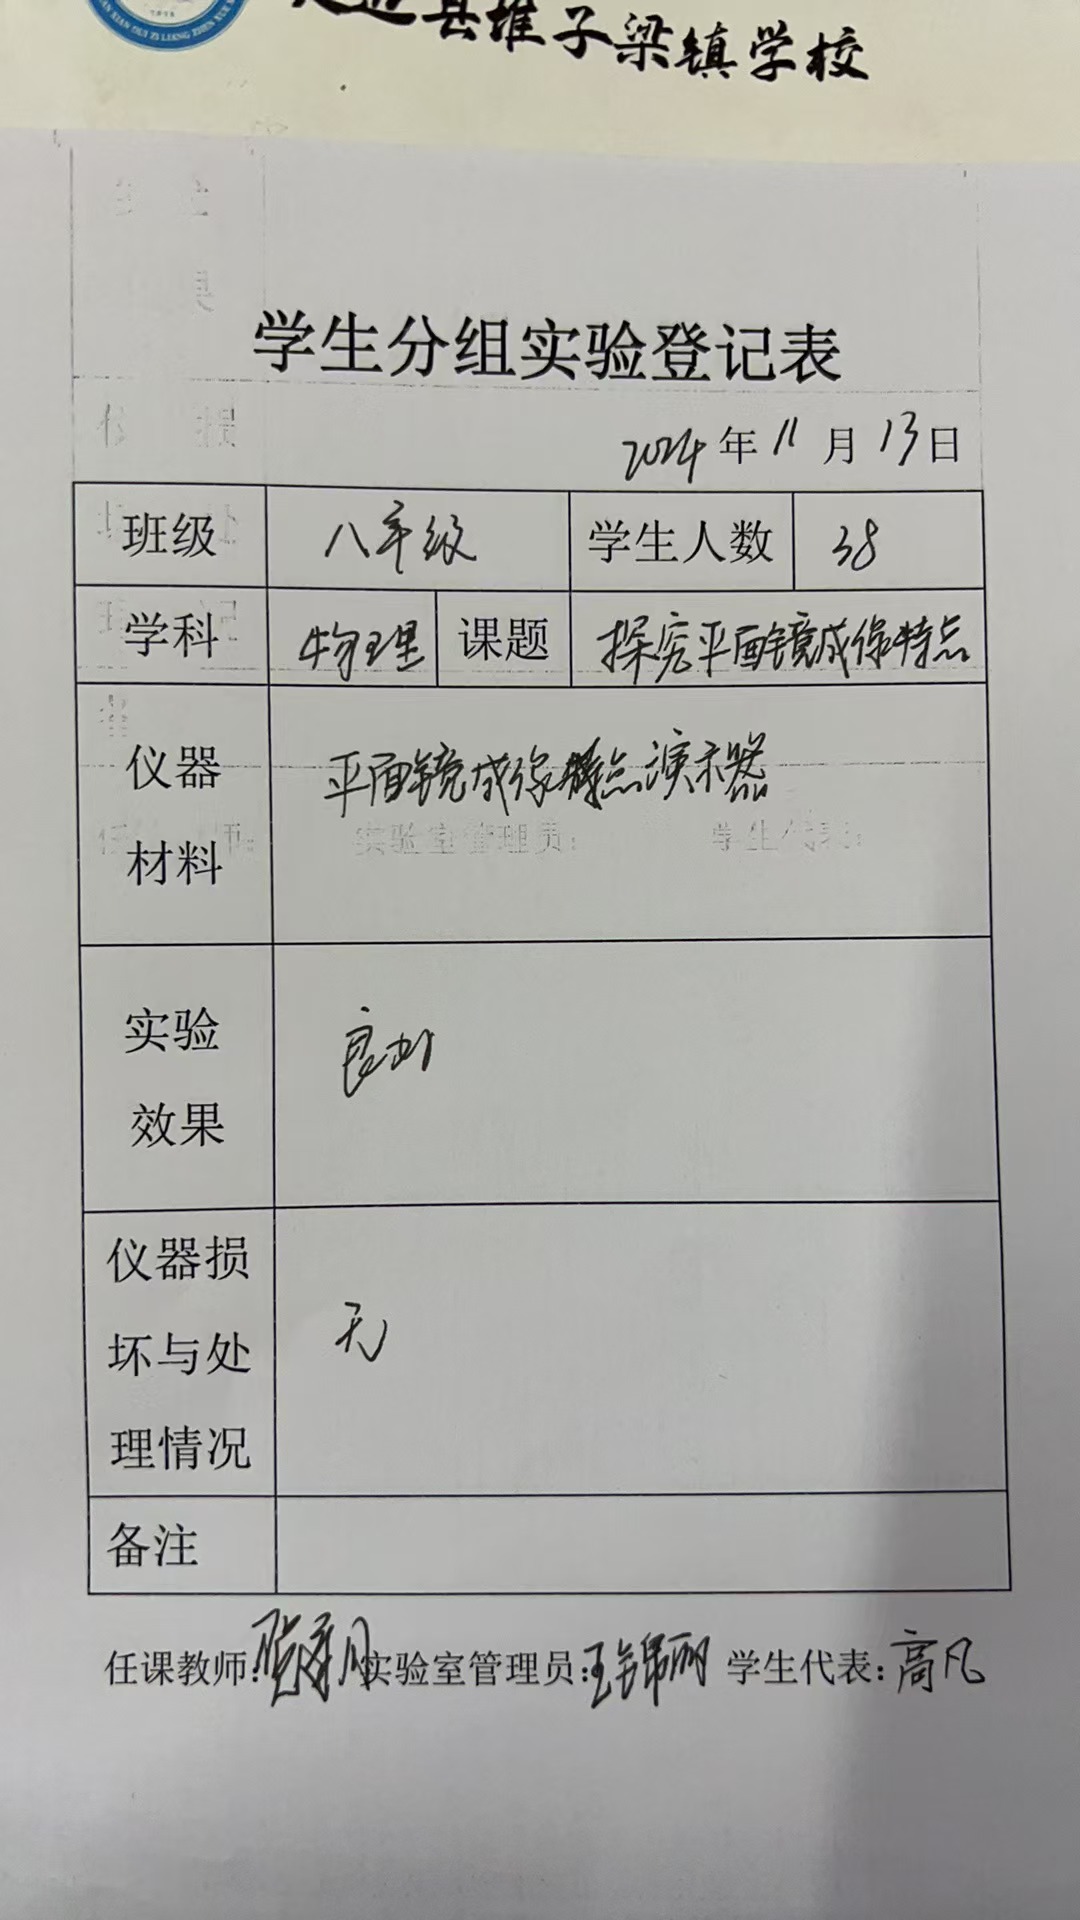 边县堆子梁镇学校
学生分组实验登记表
2024年11月13日
班级 八年级 学生人数 38
学科 物理 课题 探究平面镜成像特点
仪器材料 平面镜成像特点演示器
实验效果 良好
仪器损坏与处理情况 无
备注
任课教师: 实验室管理员:王锦丽 学生代表:高凡